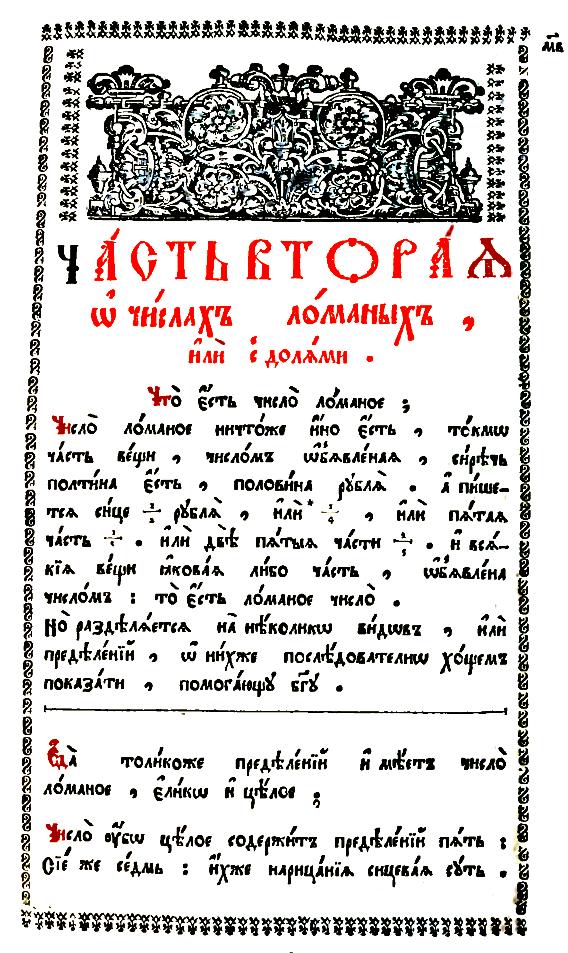 м҃в
Ча́сть втора́ѧ
ѡ҆ чи́слахъ ло́маныхъ ,
и҆лѝ с̾ доля́ми .
Что̀ є҆́сть число̀ ло́маное ;
Число̀ ло́маное ничто́же и҆́но є҆́сть , то́кмѡ
ча́сть ве́щи , число́мъ ѡ҆б̾ѧвле́наѧ , си́рѣчь
полти́на є҆́сть , полови́на рублѧ̀ . а҆ пи́ше-
тсѧ си́це 1/2 рублѧ̀ , и҆лѝ * 1/4 , и҆лѝ пѧ́таѧ
ча́сть 1/5 . и҆лѝ двѣ̀ пѧ́тыѧ ча́сти 2/5 . и҆ всѧ́-
кїѧ ве́щи ꙗ҆кова́ѧ ли́бо ча́сть , ѡ҆б̾ѧвле́на
число́мъ : то̀ є҆́сть ло́маное число̀ .
Но̀ раздѣлѧ́етсѧ на̀ нѣ́коликѡ ви́дѡвъ , и҆лѝ
предѣле́нїй , ѡ҆ ни́хже послѣ́дователнѡ хо́щемъ
показа́ти , помога́ющу бг҃у .
Є҆да̀ толи́коже предѣле́нїй и҆мѣ́етъ число̀
ло́маное , є҆ли́кѡ и҆ цѣ́лое ;
Число̀ ᲂу҆́бѡ цѣ́лое содержи́тъ предѣле́нїй пѧ́ть :
Сїе́ же се́дмь : и҆́хже нарица́нїѧ сицева́ѧ су́ть .